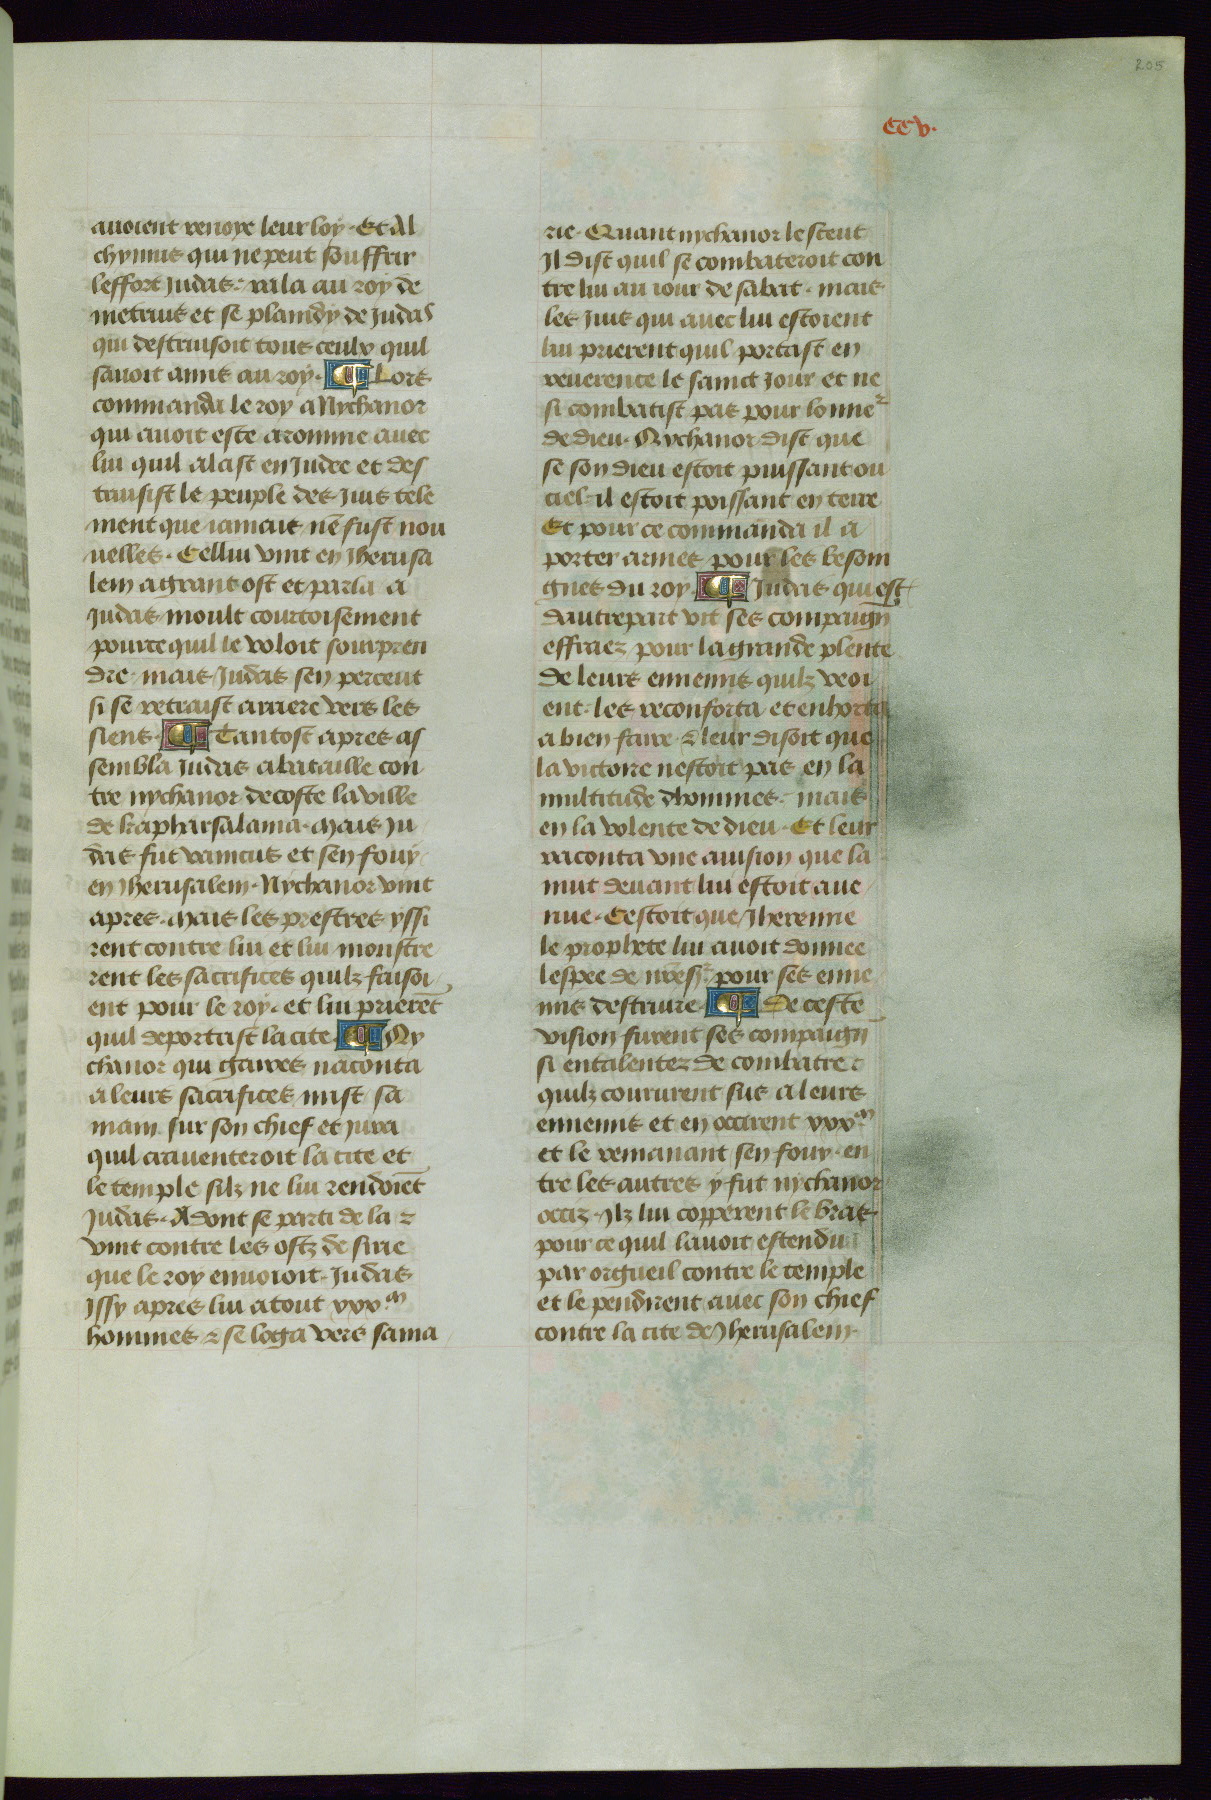 205
CCv.
avoient renoye leur loy. Et Al
chymus qui ne peut souffrir
leffort judas. rala au roy de
metrius et se plaindy de judas
qui destruisoit tous ceulx quil
savoit amis au roy. Lors
commanda le roy a Nychanor
qui avoit este a romme avec
lui quil alast en judee et des
truisist le peuple des juis tele
ment que iamais nē fust nou
velles. Cellui vint en jherusa
lem a grant ost et parla a
judas moult courtoisement
pource quil le voloit sourpren
dre mais judas sen perceut
si se retraist arriere vers les
siens. Tantost apres as
sembla judas a bataille con
tre nychanor decoste la ville
de kapharsalama. Mais ju
das fut vaincus et sen fouy
en jherusalem. Nychanor vint
apres. Mais les prestres yssi
rent contre lui et lui monstre
rent les sacrifices quilz faisoi
ent pour le roy. et lui prierēt
quil deportast la cite. Ny
chanor qui gaires naconta
a leurs sacrifices mist sa
main sur son chief et jura
quil craventeroit la cite et
le temple silz ne lui rendoiēt
judas. Adont se parti de la ⁊
vint contre les ostz de sirie
que le roy envoioit. judas
jssy apres lui atout xxx.m
hommes ⁊ se loga vers sama
rie. Quant nychanor le sceut
Jl dist quil se combateroit con
tre lui au iour de sabat. mais
les juis qui avec lui estoient
lui prierent quil portast en
reverence le sainct jour et ne
si combatist pas pour lonne
de dieu. Nychanor dist que
se son dieu estoit puissant ou
ciel. il estoit poissant en terre
Et pour ce commanda il a
porter armes pour les besoin
gnes du roy. Judas qui est
dautrepart vit ses compaign
effraez pour la grande plente
de leurs ennemis quilz veoi
ent. les reconforta et enhorta
a bien faire ⁊ leur disoit que
la victoire nestoit pas en la
multitude dhommes. mais
en la volente de dieu. Et leur
raconta une avision que la
nuit devant lui estoit ave
nue. Cestoit que jheremie
le prophete lui avoit donnee
lespee de pour ses enne
mis destruire. De ceste
vision furent ses compaign
si entalentez de combatre
quilz coururent sus a leurs
ennemis et en occirent xxx.m
et le remanant sen fouy. en
tre les autres y fut nychanor
occiz. Jlz lui copperent le bras
pour ce quil lavoit estendu
par orgueil contre le temple
et le pendirent avec son chief
contre la cite de Jherusalem